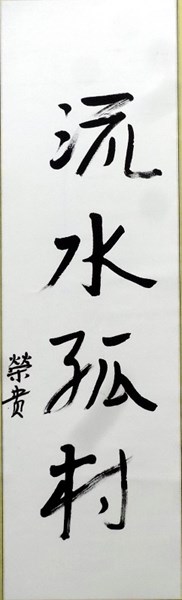 流水孤村
榮貴